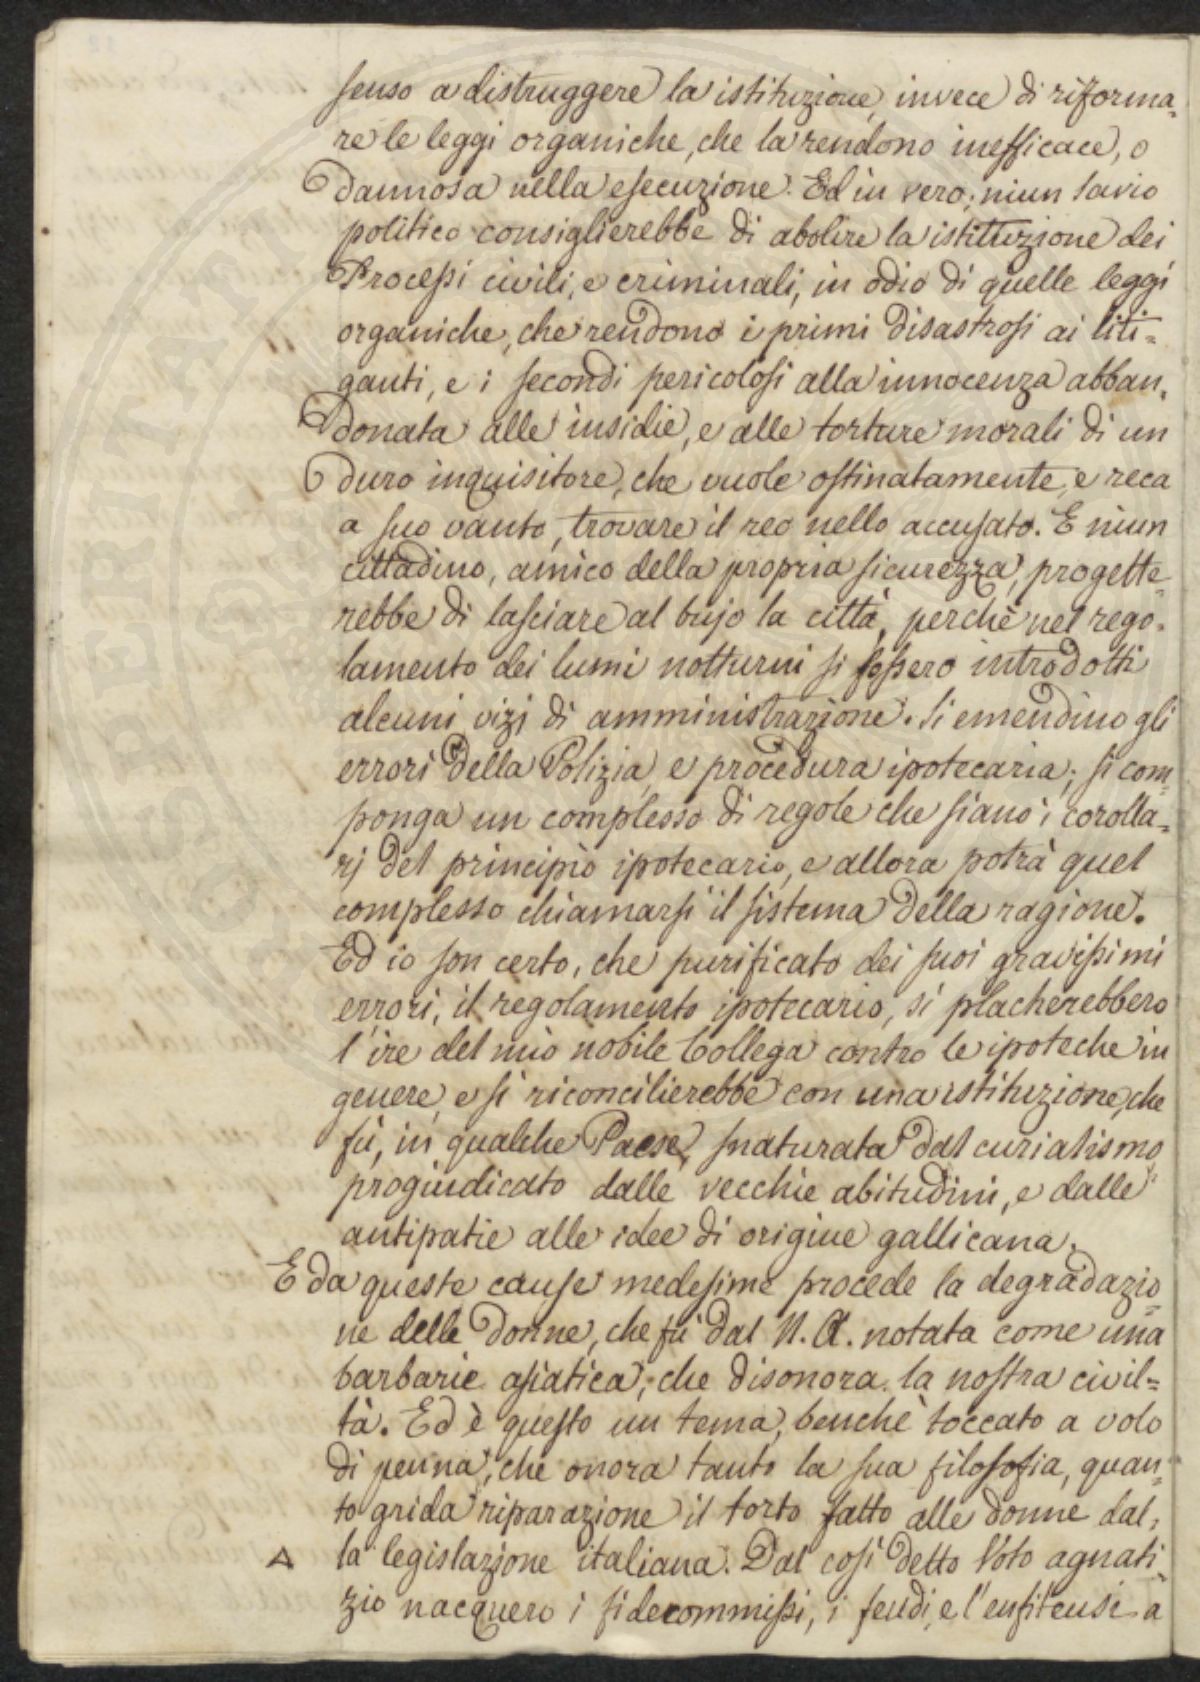 senso a distruggere la istituzione, invece di riforma-
re le leggi organiche, che la rendono inefficace, o
dannosa nella esecuzione. Ed in vero, niun savio
politico consiglierebbe di abolire la istituzione dei
Processi civili, e criminali, in odio di quelle leggi
organiche, che rendono i primi disastrosi ai liti=
ganti, e i secondi pericolosi alla innocenza abban-
donata alle insidie, e alle torture morali di un
duro inquisitore, che vuole ostinatamente, e reca
a suo vanto, trovare il reo nello accusato. E niun
cittadino, amico della propria sicurezza, progette-
rebbe di lasciare al bujo la città, perchè nel rego-
lamento dei lumi notturni si fossero introdotti
alcuni vizi di amministrazione. Si emendino gli
errori della Polizia, e procedura ipotecaria; si com=
ponga un complesso di regole che siano i corolla=
rj del principio ipotecario, e allora potrà quel
complesso chiamarsi il sistema della ragione.
Ed io son certo, che purificato dei suoi gravissimi
errori, il regolamento ipotecario, si placherebbero
l'ire del mio nobile Collega contro le ipoteche in
genere, e si riconcilierebbe con una istituzione, che
fù, in qualche Paese, snaturata dal curialismo
progiudicato dalle vecchie abitudini, e dalle
antipatie alle idee di origine gallicana.
E da queste cause medesime procede la degradazio=
ne delle Donne, che fù dal N. A. notata come una
barbarie asiatica, che disonora la nostra civil=
tà. Ed è questo un tema, benchè toccato a volo
di penna, che onora tanto la sua filosofia, quan-
to grida riparazione il torto fatto alle donne dal-
la legislazione italiana. Dal così detto Voto agnati-
zio nacquero i fidecommissi, i feudi, e l'enfiteusi a
SPERITATI